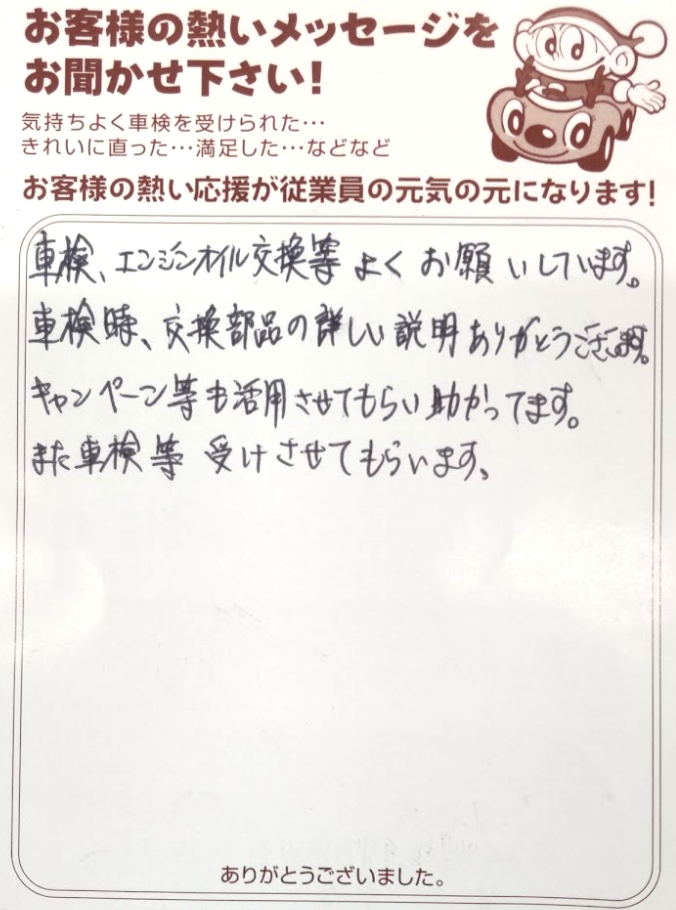 お客様の熱いメッセージを
お聞かせ下さい!
気持ちよく車検を受けられた…
きれいに直った…満足した…などなど
お客様の熱い応援が従業員の元気の元になります!
車検、エンジンオイル交換等よくお願いしています。
車検時、交換部品の詳しい説明ありがとうございます。
キャンペーン等も活用させてもらい助かってます。
また車検等受けさせてもらいます。
ありがとうございました。